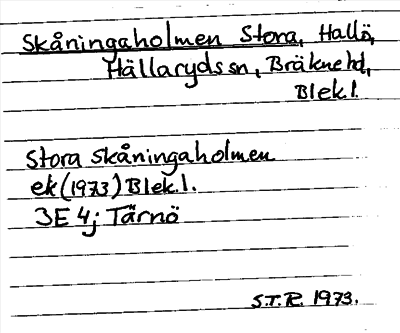 Skåningaholmen Stora, Hallö,
Hällarydssn, Bräknehd,
Blek.l.
Stora Skåningaholmen
ek(1973) Blek.l.
3E 4j Tärnö
S.T.R. 1973.